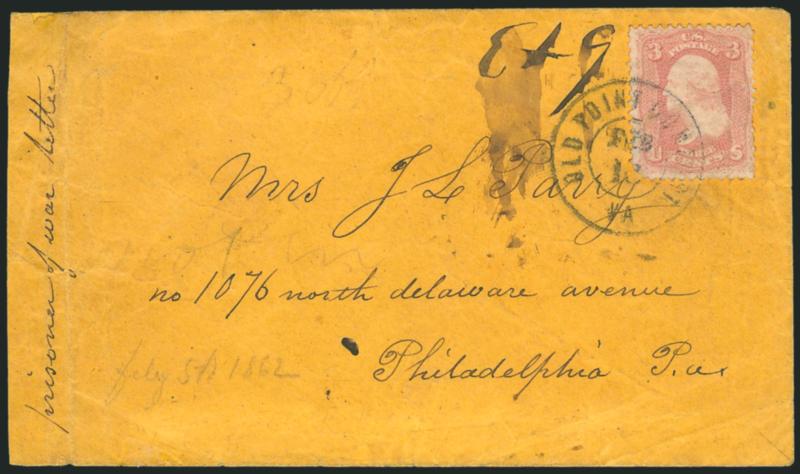 E & G
3 U.S. 3
POSTAGE
U CENTS S
OLD POINT
FEB
VA
Mrs J L Parry
no 1076 north delaware avenue
Philadelphia P.a.
prisoner of war letter
5th 1862